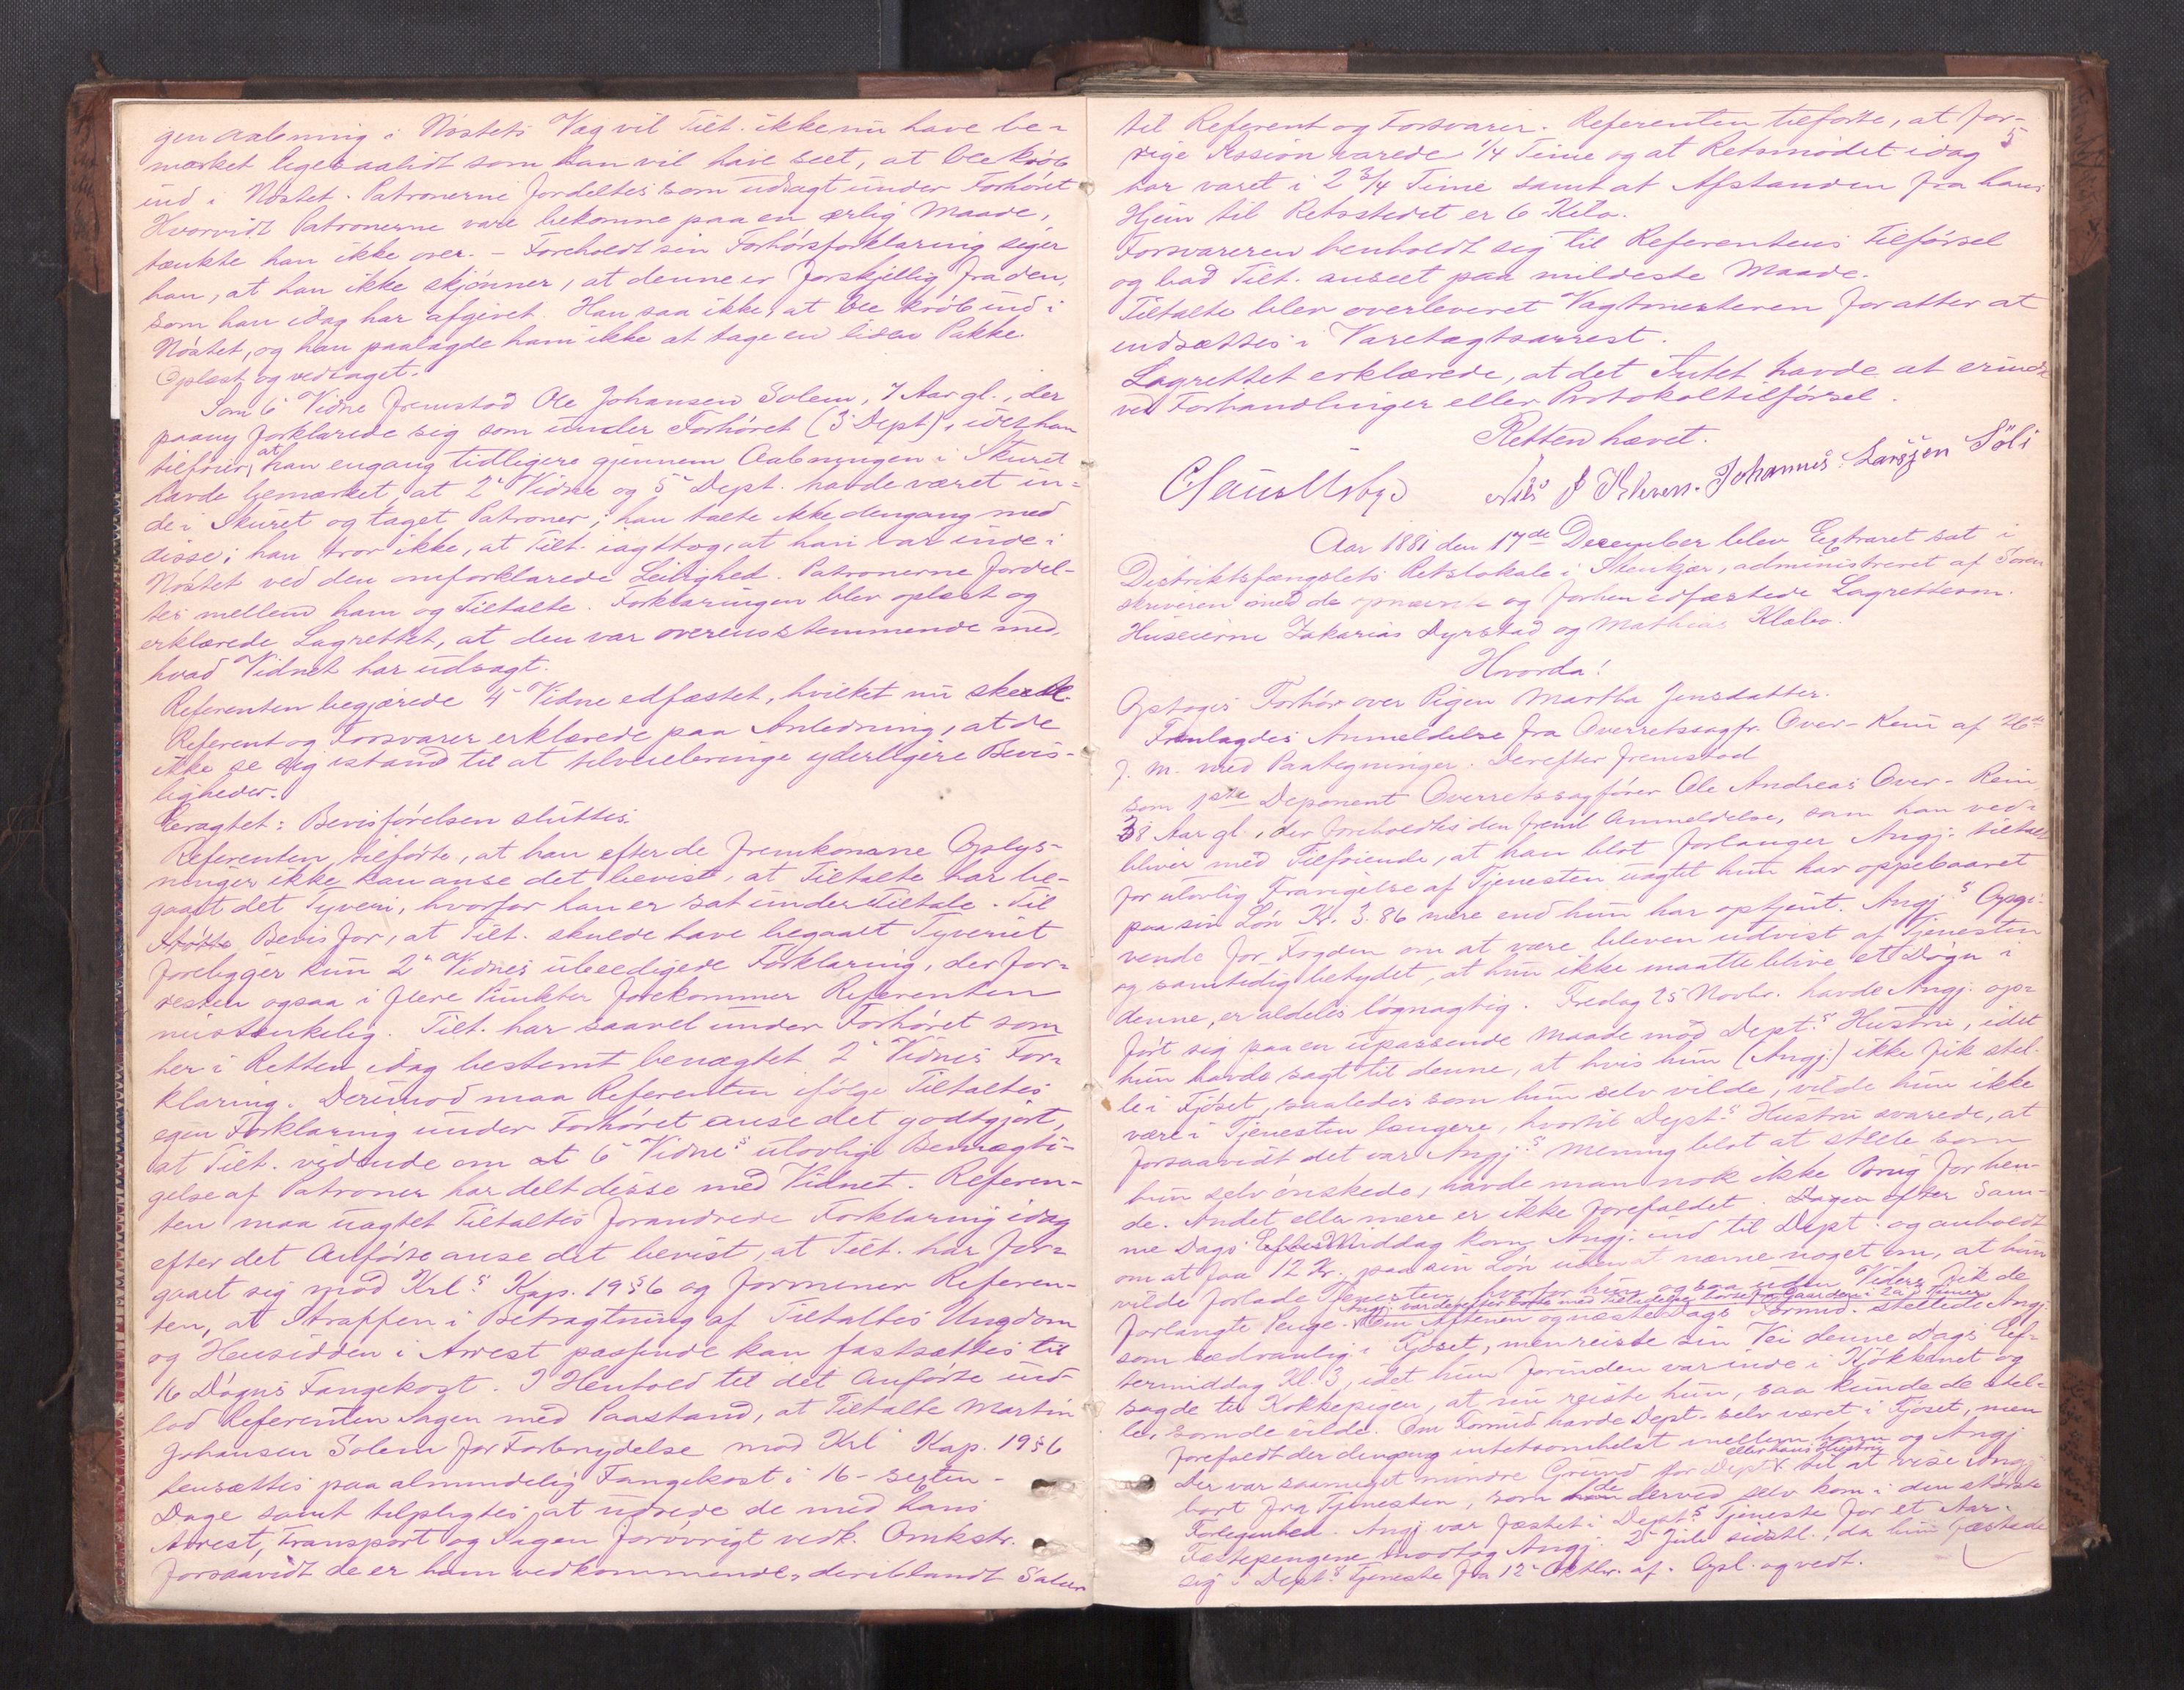 gen Aabning i Nøstets Væg vil Tilt. ikke nu have be-
mærket ligesaalidt som han vil have seet, at Ole krøb
ind i Nøstet. Patronerne fordeltes som udsagt under Forhøret
Hvorvidt Patronerne vare bekomne paa en ærlig Maade,
tænkte han ikke over. – Foreholdt sin Forhørsforklaring siger
han, at han ikke skjønner, at denne er forskjellig fra den,
som han idag har afgivet. Han saa ikke, at Ole krøb ind i
Nøstet, og han paalagde ham ikke at tage en liden Pakke.
Oplæst og vedtaget.
Som 6. Vidne fremstod Ole Johansen Solem, 7 Aar gl., der
paany forklarede sig som under Forhøret (3. Dept), idet han
tilføier, at han engang tidligere gjennem Aabningen i Skuret
havde bemærket, at 2. Vidne og 5. Dept. havde været in-
de i Skuret og taget Patroner; han talte ikke dengang med
disse; han tror ikke, at Tilt. iagttog, at han var inde i
Nøstet ved den omforklarede Leilighed. Patronerne fordel-
tes mellem ham og Tiltalte. Forklaringen blev oplæst og
erklærede Lagrettet, at den var overensstemmende med,
hvad Vidnet har udsagt.
Referenten begjærede 4. Vidne edfæstet, hvilket nu skede.
Referent og Forsvarer erklærede paa Anledning, at de
ikke se sig istand til at tilveiebringe yderligere Bevis-
ligheder.
Eragtet: Bevisførelsen sluttes.
Referenten tilførte, at han efter de fremkomne Oplys-
ninger ikke kan anse det bevist, at Tiltalte har be-
gaaet det Tyveri, hvorfor han er sat under Tiltale. Til
Støtte Bevis for, at Tilt. skulde have begaaet Tyveriet
foreligger kun 2. Vidnes ubeedigede Forklaring, der for-
resten ogsaa i flere Punkter forekommer Referenten
mistænkelig. Tilt. har saavel under Forhøret som
her i Retten idag bestemt benægtet 2. Vidnes For-
klaring. Derimod maa Referenten ifølge Tiltaltes
egen Forklaring under Forhøret anse det godtgjort,
at Tilt. vidende om at 6. Vidnes ulovlige Bemægti-
gelse af Patroner har delt disse med Vidnet. Referen-
ten maa uagtet Tiltaltes forandrede Forklaring idag
efter det Anførte anse det bevist, at Tilt. har for-
gaaet sig mod Krls Kap. 19 § 6 og formener Referen-
ten, at Straffen i Betragtning af Tiltaltes Ungdom
og Hensidden i Arrest passende kan fastsættes til
16 Døgns Fangekost. I Henhold til det Anførte ind-
lod Referenten Sagen med Paastand, at Tiltalte Martin
Johansen Solem for Forbrydelse mod Krl Kap. 19 § 6
hensættes paa almindelig Fangekost i 16 – sexten –
Dage samt tilpligtes at udrede de med hans
Arrest, Transport og Sagen forøvrigt vedk. Omkstn.
forsaavidt de er ham vedkommende, deriblandt Salær
til Referent og Forsvarer. Referenten tilførte, at for-
5
rige Session varede 1/4 Time og at Retsmødet idag
har varet i 2 3/4 Time samt at Afstanden fra hans
Hjem til Retsstedet er 6 Kilo.
Forsvareren henholdt sig til Referentens Tilførsel
og bad Tilt. anseet paa mildeste Maade.
Tiltalte blev overleveret Vagtmesteren for atter at
indsættes i Varetægtsarrest.
Lagrettet erklærede, at det Intet havde at erindre
ved Forhandlinger eller Protokoltilførsel.
Retten hævet.
Nils J Johannes Larssen Søli
Aar 1881 den 17de December blev Extraret sat i
Distriktsfængslets Retslokale i Stenkjær, administreret af Soren-
skriveren med de opnævnte og forhen edfæstede Lagrettesm.
Huseierne Zakarias Dyrstad og Mathias Klæbo.
Hvorda!
Optoges Forhør over Pigen Martha Jensdatter.
Fremlagdes Anmeldelse fra Overretssagfr. Over-Rein af 26de
f. M. med Paategninger. Derefter fremstod
som 1ste Deponent Overretssagfører Ole Andreas Over-Rein
38 Aar gl., der foreholdtes den freml Anmeldelse, som han ved-
bliver med Tilføiende, at han blot forlanger Angj. tiltalt
for ulovlig Fravigelse af Tjenesten uagtet hun har oppebaaret
paa sin Løn Kr. 3.86 mere end hun har optjent. Angj.s Opgi-
vende for Fogden om at være bleven udvist af Tjenesten
og samtidig betydet, at hun ikke maatte blive et Døgn i
denne, er aldeles løgnagtig. Fredag 25 Novbr. havde Angj. op-
ført sig paa en upassende Maade mod Dept.s Hustru, idet
hun havde sagt til denne, at hvis hun (Angj.) ikke fik stel-
le i Fjøset, saaledes som hun selv vilde, vilde hun ikke
være i Tjenesten længere, hvortil Dept.s Hustru svarede, at
forsaavidt det var Angj.s Mening blot at stelle som
hun selv ønskede, havde man nok ikke Brug for hen-
de. Andet eller mere er ikke forefaldet. Dagen efter Sam-
me Dags Eftermiddag kom Angj. ind til Dept. og anholdt
om at faa 12 Kr. paa sin Løn uden at nævne noget om, at hun
vilde forlade Tjenesten, hvorfor hun ogsaa uden Videre fik de
Angj. var derefter borte med Tilladelse fra Gaarden i 2 a 3 Timer
forlangte Penge. Om Aftenen og næste Dags Formid. stellede Angj.
som sædvanlig i Fjøset, men reiste sin Vei denne Dags Ef-
termiddag Kl. 3, idet hun forinden var inde i Kjøkkenet og
sagde til Kokkepigen, at nu reiste hun, saa kunde de stel-
le, som de vilde. Om Formid. havde Dept. selv været i Fjøset, men
forefaldt der dengang intetsomhelst mellem ham og Angj
eller hans Hustru
Der var saameget mindre Grund for Dept. til at vise Angj
bort fra Tjenesten, som de derved selv kom i den største
Forlegenhed. Angj var fæstet i Dept.s Tjeneste for et Aar.
Fæstepengene modtog Angj. 2. Juli sidstl., da hun fæstede
sig i Dept.s Tjeneste fra 12. Oktbr. af. Opl. og vedt.